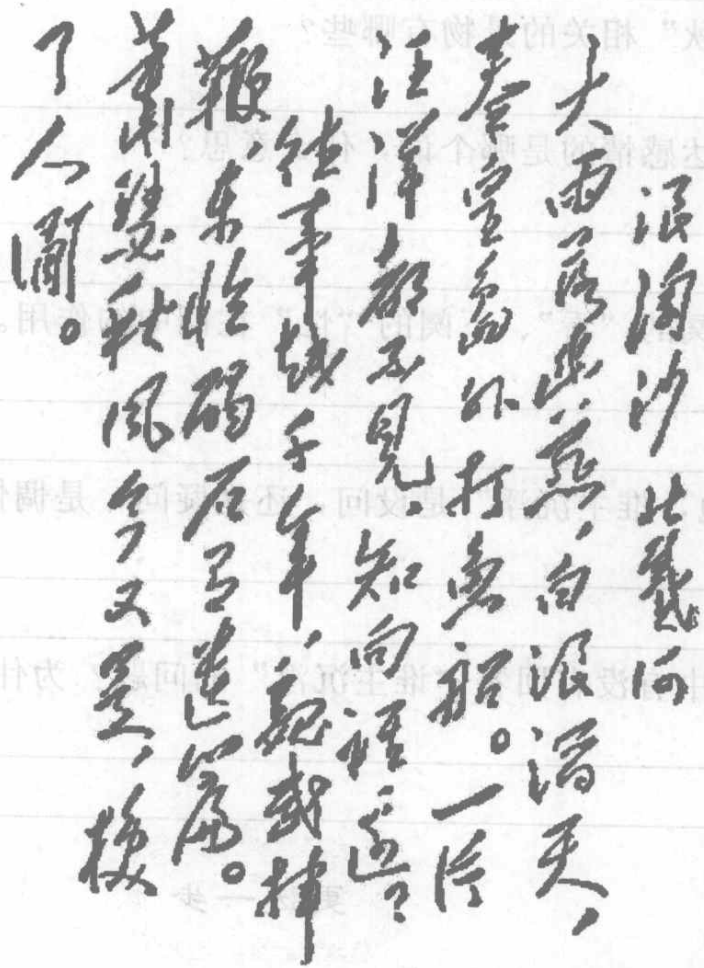 浪淘沙 北戴河
大雨落幽燕,白浪滔天,
秦皇島外打魚船。一片
汪洋都不見,知向誰邊?
往事越千年,魏武揮
鞭,东临碣石有遺篇。
蕭瑟秋風今又是,換
了人间。